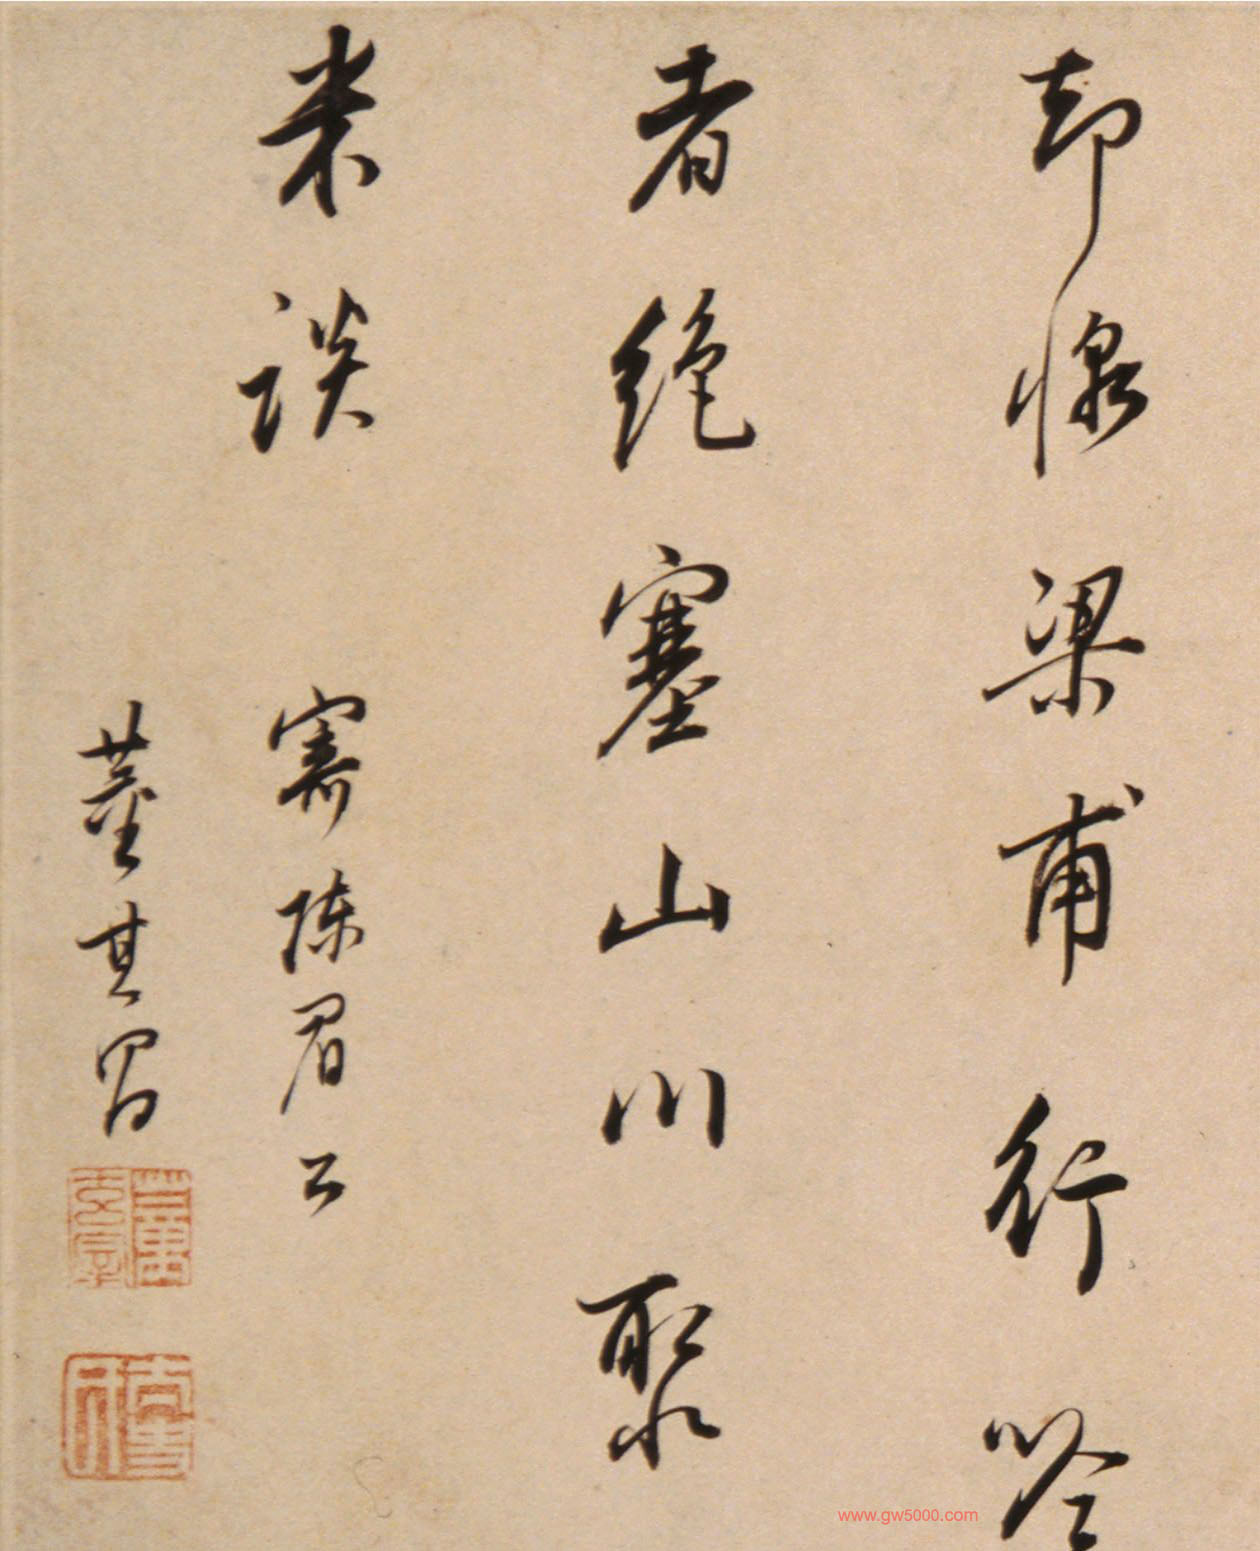 却梁甫行吟
者絕塞山川聚
米談
寄陳眉公
董其昌
董玄宰
www.gw5000.com